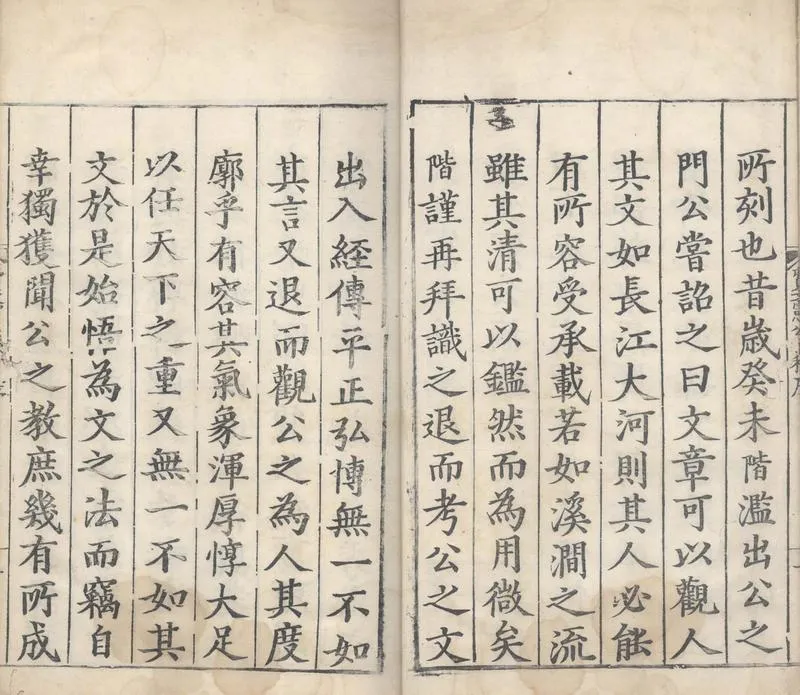 所刻也昔歲癸未階濫出公之
門公嘗詔之曰文章可以觀人
其文如長江大河則其人必能
有所容受承載若如溪澗之流
雖其清可以鑑然而為用微矣
階謹再拜識之退而考公之文
出入經傳平正弘博無一不如
其言又退而觀公之為人其度
廓乎有容其氣象渾厚惇大足
以任天下之重又無一不如其
文於是始悟為文之法而竊自
幸獨獲聞公之教庶幾有所成